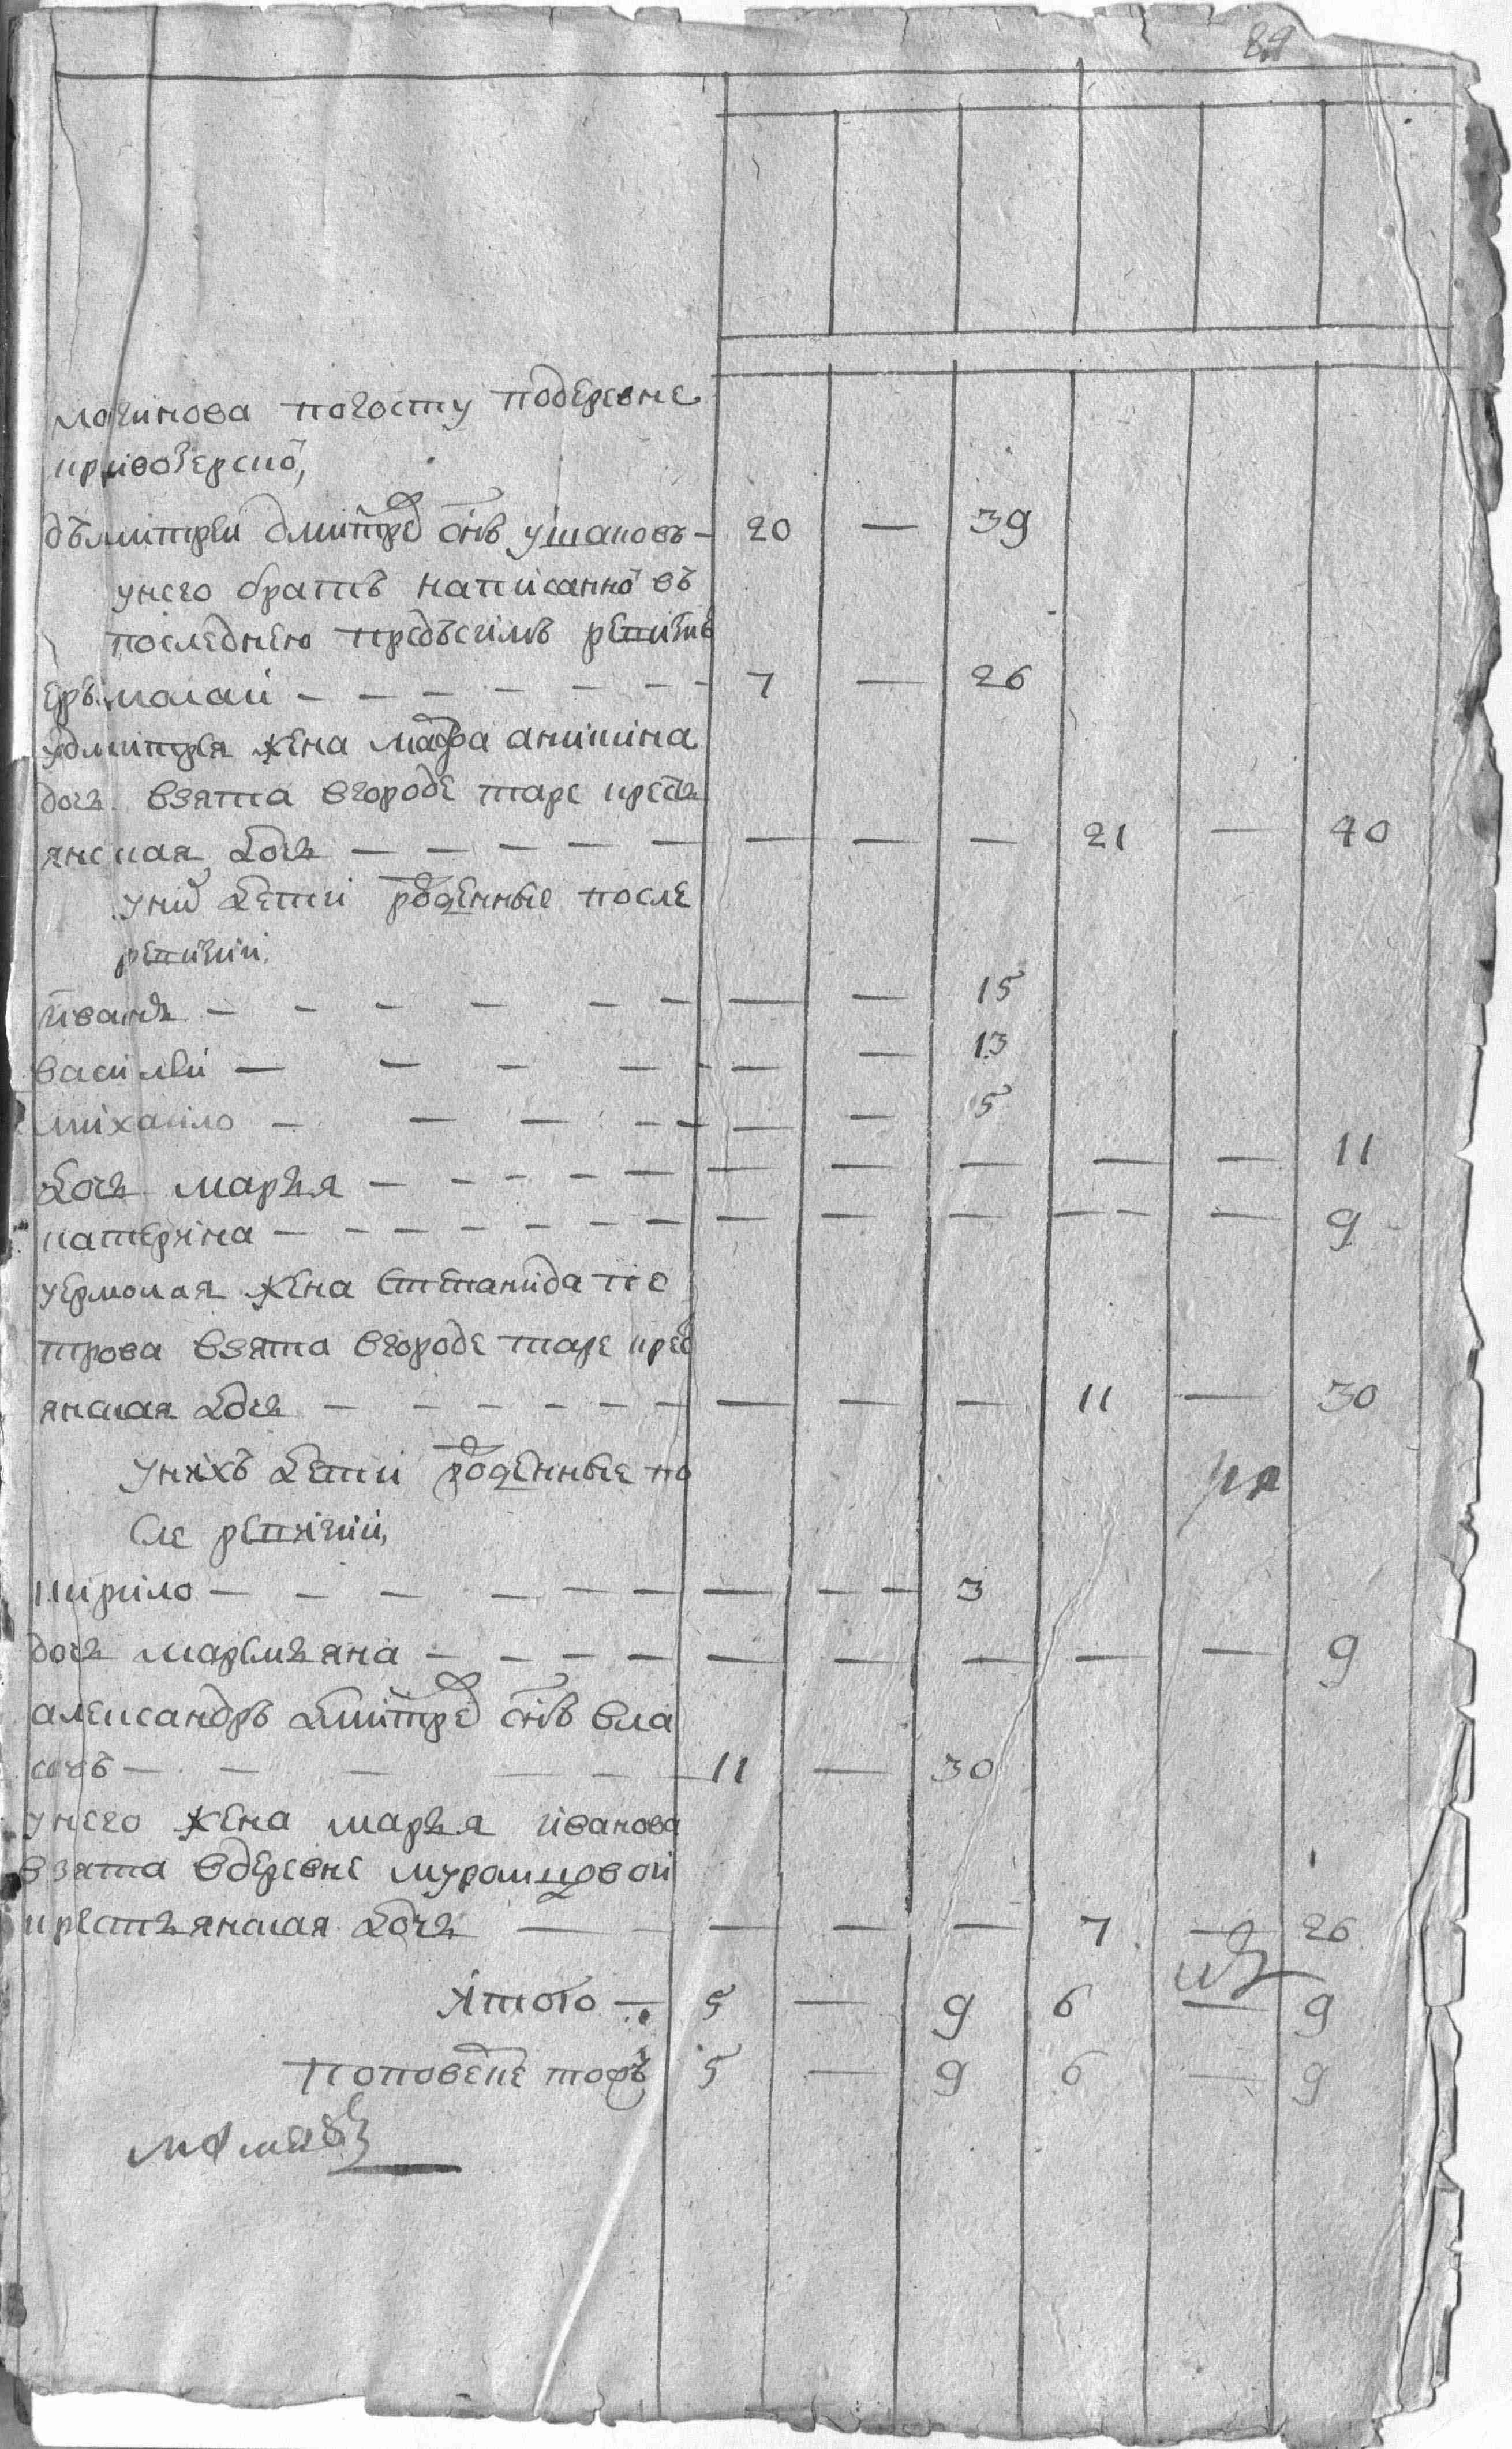 89
логинова погосту подеревне
кривоѡзерскоⷯ
дъмитреи дмитреⷡ снъ ушаковъ — 20 — 39
унего братъ написанноⷯ въ
последнею предъсимъ ревизиѣ
еръмолаи — — — — — — 7 — 26
удмитрея жена мафра аникина
дочь взята вгороде таре кресть
янская дочь — — — — — — — — 21 — 40
униⷯ дети рожденные после
ревизии
иванъ — — — — — — — — 15
василеи — — — — — — — 13
михаило — — — — — — — 5
дочь марья — — — — — — — — — — 11
катерина — — — — — — — — — — — — 9
уермолая жена степанида пе
трова взята вгороде таре крес
янская дочь — — — — — — — — — 11 — 30
унихъ дети рожденные по
сле ревизии
кирило — — — — — — — — — 3
дочь маремьяна — — — — — — — — — 9
александръ дмитреⷡ снъ вла
совъ — — — — — 11 — 30
унего жена марья иванова
взята вдеревне муромцовой
крестьянская дочь — — — — — 7 — 26
итого — 5 — 9 6 — 9
поповерке тожъ 5 — 9 6 — 9